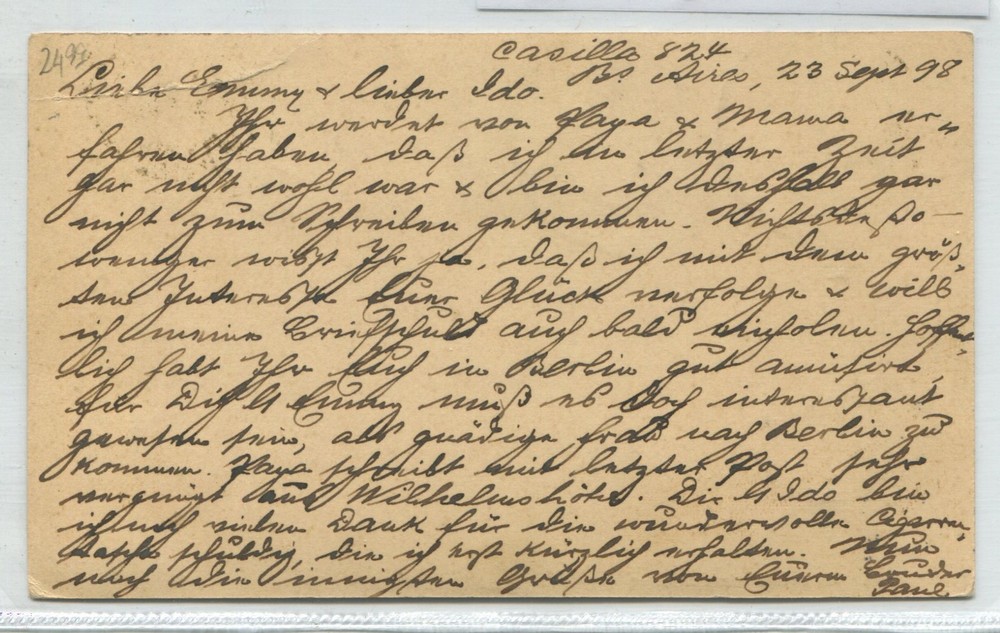 2499
Casilla 824
Bs Aires, 23 Sept 98
Liebe Emmy & lieber Ido.
Ihr werdet von Papa & Mama er-
fahren haben, daß ich in letzter Zeit
gar nicht wohl war & bin ich deshalb gar
nicht zum Schreiben gekommen. Nichtsdesto-
weniger wißt Ihr ja, daß ich mit dem größ-
ten Interesse Euer Glück verfolge & will
ich meine Briefschuld auch bald einholen. Hoffent-
lich habt Ihr Euch in Berlin gut amüsirt,
für Dich l Emmy muß es doch interessant
gewesen sein, als gnädige Frau nach Berlin zu
kommen. Papa schreibt mir letzter Post sehr
vergnügt aus Wilhelmshöhe. Dir l Ido bin
ich noch vielen Dank für die wundervolle Cigarren-
tasche schuldig, die ich erst kürzlich erhalten. Nun
noch die innigsten Grüße von Eurem Bruder
Paul